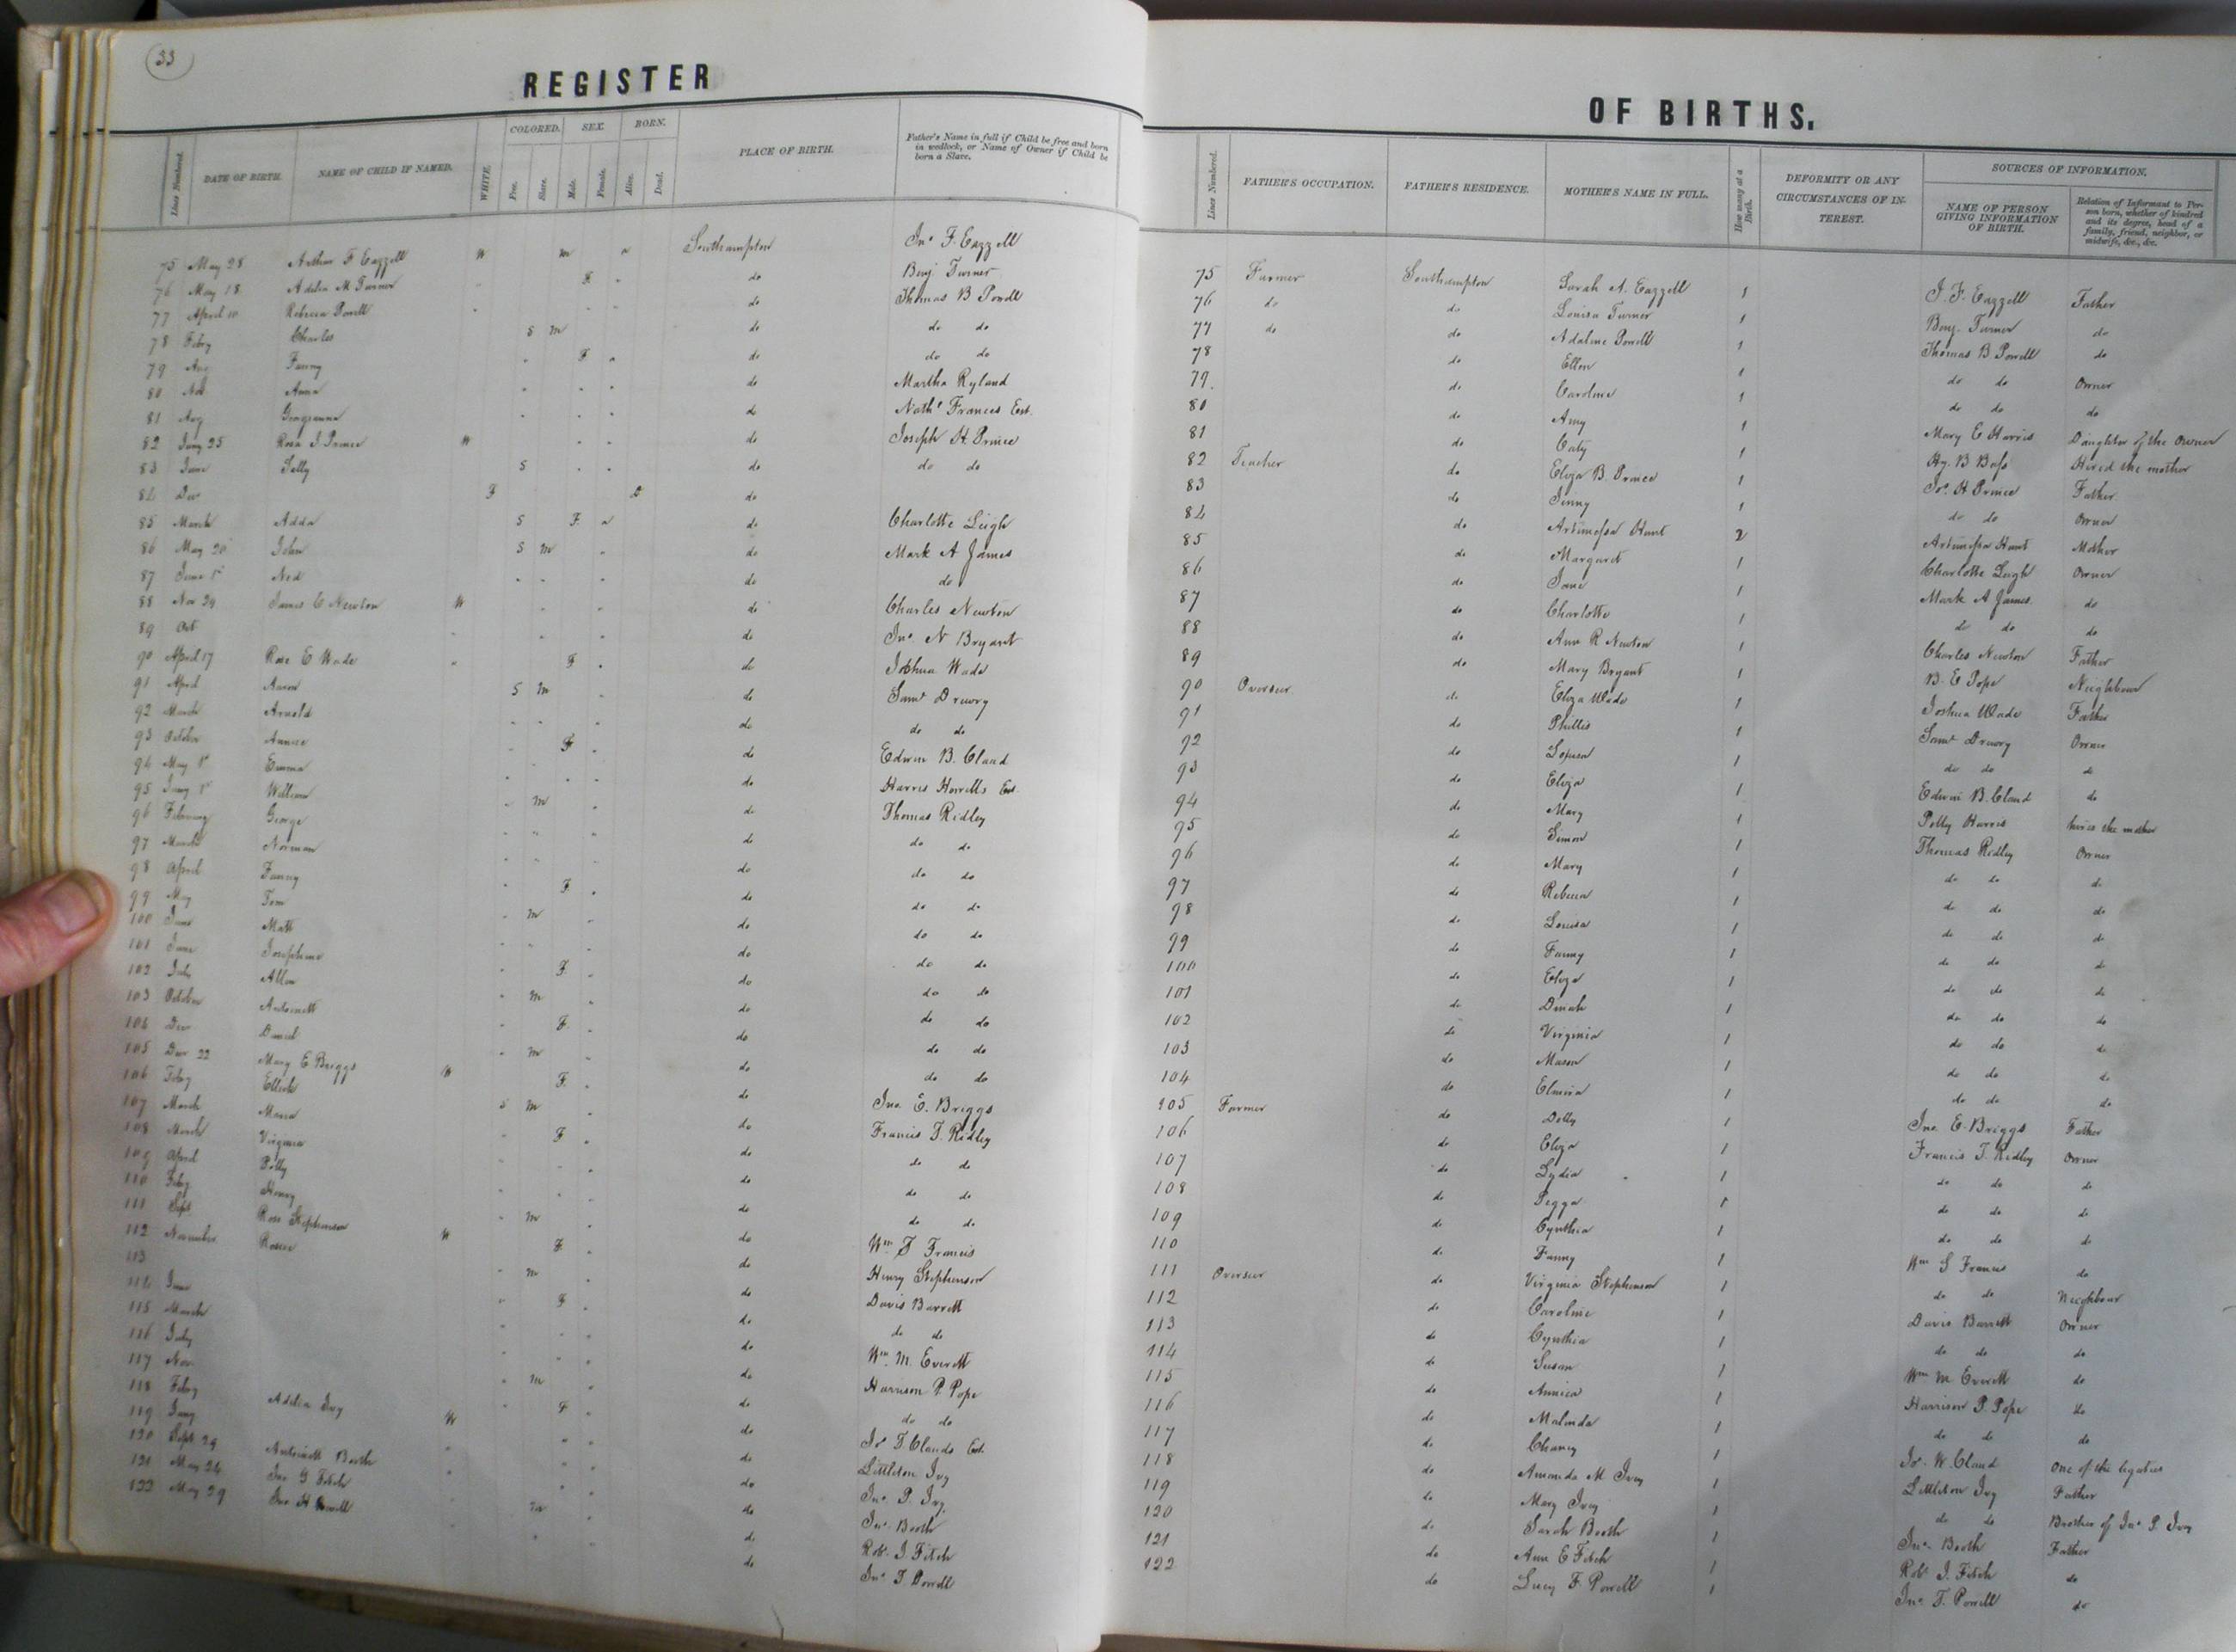 33
REGISTER
COLORED. SEX. BORN.
Lines Numbered. DATE OF BIRTH. NAME OF CHILD IF NAMED. WHITE. Free. Slave. Male. Female. Alive. Dead. PLACE OF BIRTH. Father's Name in full if Child be free and born in wedlock, or Name of Owner if Child be born a Slave.
75 May 28 Arthur F Cazzell W m Southampton Jno F. Cazzell
76 May 18 Adelia M Turner F do Benj. Turner
77 April 10 Rebecca Powell do Thomas B Powell
78 Feby Charles S m do do do
79 Aug Fanny F do do do
80 Anna do Martha Ryland
81 Aug Georgeanna do Nathl Frances Est.
82 Jany 25 Rosa J. Prince W do Joseph H Prince
83 June Sally S do do do
84 Dec F D do
85 March Adda S F do Charlotte Leigh
86 May 20 John S m do Mark A James
87 June 1st Ned do do
88 Nov 24 James C Newton W do Charles Newton
89 Oct do Jno N Bryant
90 April 17 Rose E Wade F do Joshua Wade
91 April Aaron S m do Saml Drewry
92 March Arnold do do do
93 October F do Edwin B. Claud
94 May 1st Emma do Harris Howells Est.
95 Jany 1st William m do Thomas Ridley
96 February George do do do
97 March Norman do do do
98 April Fanny F do do do
99 May Tom m do do do
100 June Matt do do do
101 June Josephine F do do do
102 July Allen m do do do
103 October Antoinett F do do do
104 Dec Daniel m do do do
105 Dec 22 Mary E Briggs W F do Jno. E. Briggs
106 Feby S m do Francis T. Ridley
107 March Maria F do do do
108 March Virginia do do do
109 April Polly do do do
110 Feby Henry m do Wm S Francis
111 Sept Rose Stephenson W F do Henry Stephenson
112 November m do Davis Barrett
113 F do do do
114 June do Wm. M. Everett
115 March do Harrison P. Pope
116 July m do do do
117 Nov F do
118 Feby Adelia Ivy W do Littleton Ivy
119 Jany do Jno. P. Ivy
120 Sept 29 Antoinett Booth do Jno. Booth
121 May 24 Jno G Fitch m do Robt J Fitch
122 May 29 Jno H Powell do Jno. T. Powell
OF BIRTHS.
SOURCES OF INFORMATION.
Lines Numbered. FATHER'S OCCUPATION. FATHER'S RESIDENCE. MOTHER'S NAME IN FULL. How many at a Birth. DEFORMITY OR ANY CIRCUMSTANCES OF INTEREST. NAME OF PERSON GIVING INFORMATION OF BIRTH. Relation of Informant to Person born, whether of kindred and its degree, head of a family, friend, neighbor, or midwife, &c., &c.
75 Farmer Southampton Sarah A. Cazzell 1 J. F. Cazzell Father
76 do do Louisa Turner 1 Benj. Turner do
77 do do Adaline Powell 1 Thomas B Powell do
78 do Ellen 1 do do Owner
79. do Caroline 1 do do do
80 do Amy 1 Mary E Harris Daughter of the Owner
81 do Caty 1 Hy. B Bass Hired the mother
82 Teacher do Eliza B. Prince 1 Jos. H Prince Father
83 do Jenny 1 do do Owner
84 do Artimissa Hunt 2 Artimissa Hunt Mother
85 do Margaret 1 Charlotte Leigh Owner
86 do Jane 1 Mark A James. do
87 do Charlotte 1 do do do
88 do Ann R Newton 1 Charles Newton Father
89 do Mary Bryant 1 B. E Pope Neighbour
90 Overseer do Eliza Wade 1 Joshua Wade Father
91 do Phillis 1 Saml Drewry Owner
92 do 1 do do do
93 do Eliza 1 Edwin B. Claud do
94 do Mary 1 Polly Harris hires the mother
95 do Simon 1 Thomas Ridley Owner
96 do Mary 1 do do do
97 do Rebecca 1 do do do
98 do Louisa 1 do do do
99 do Fanny 1 do do do
100 do Eliza 1 do do do
101 do Dinah 1 do do do
102 do Virginia 1 do do do
103 do Mason 1 do do do
104 do Elmira 1 do do do
105 Farmer do Dolly 1 Jno E. Briggs Father
106 do Eliza 1 Francis T. Ridley Owner
107 do Lydia 1 do do do
108 do Pegga 1 do do do
109 do Cynthia 1 do do do
110 do Fanny 1 Wm S Francis do
111 Overseer do Virginia Stephenson 1 do do Neighbour
112 do Caroline 1 Davis Barrett Owner
113 do Cynthia 1 do do do
114 do Susan 1 Wm M Everett do
115 do Annica 1 Harrison P. Pope do
116 do Malinda 1 do do do
117 do Chaney 1 Jos. W. Claud one of the legatees
118 do Amanda M. Ivey 1 Littleton Ivy Father
119 do Mary Ivey 1 do do Brother of Jno. P. Ivy
120 do Sarah Booth 1 Jno. Booth Father
121 do Ann E Fitch 1 Robt J. Fitch do
122 do Lucy F. Powell 1 Jno. T. Powell do